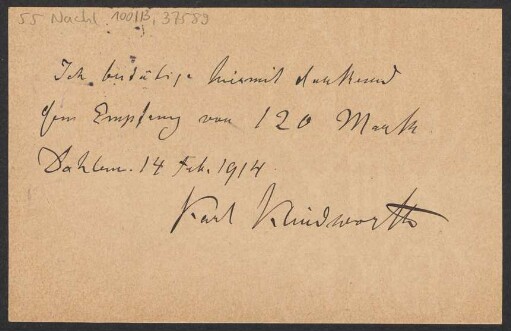 55 Nachl 100/B, 37589
Ich bestätige hiermit dankend
den Empfang von 120 Mark.
Dahlem. 14 Feb. 1914.
Karl Klindworth